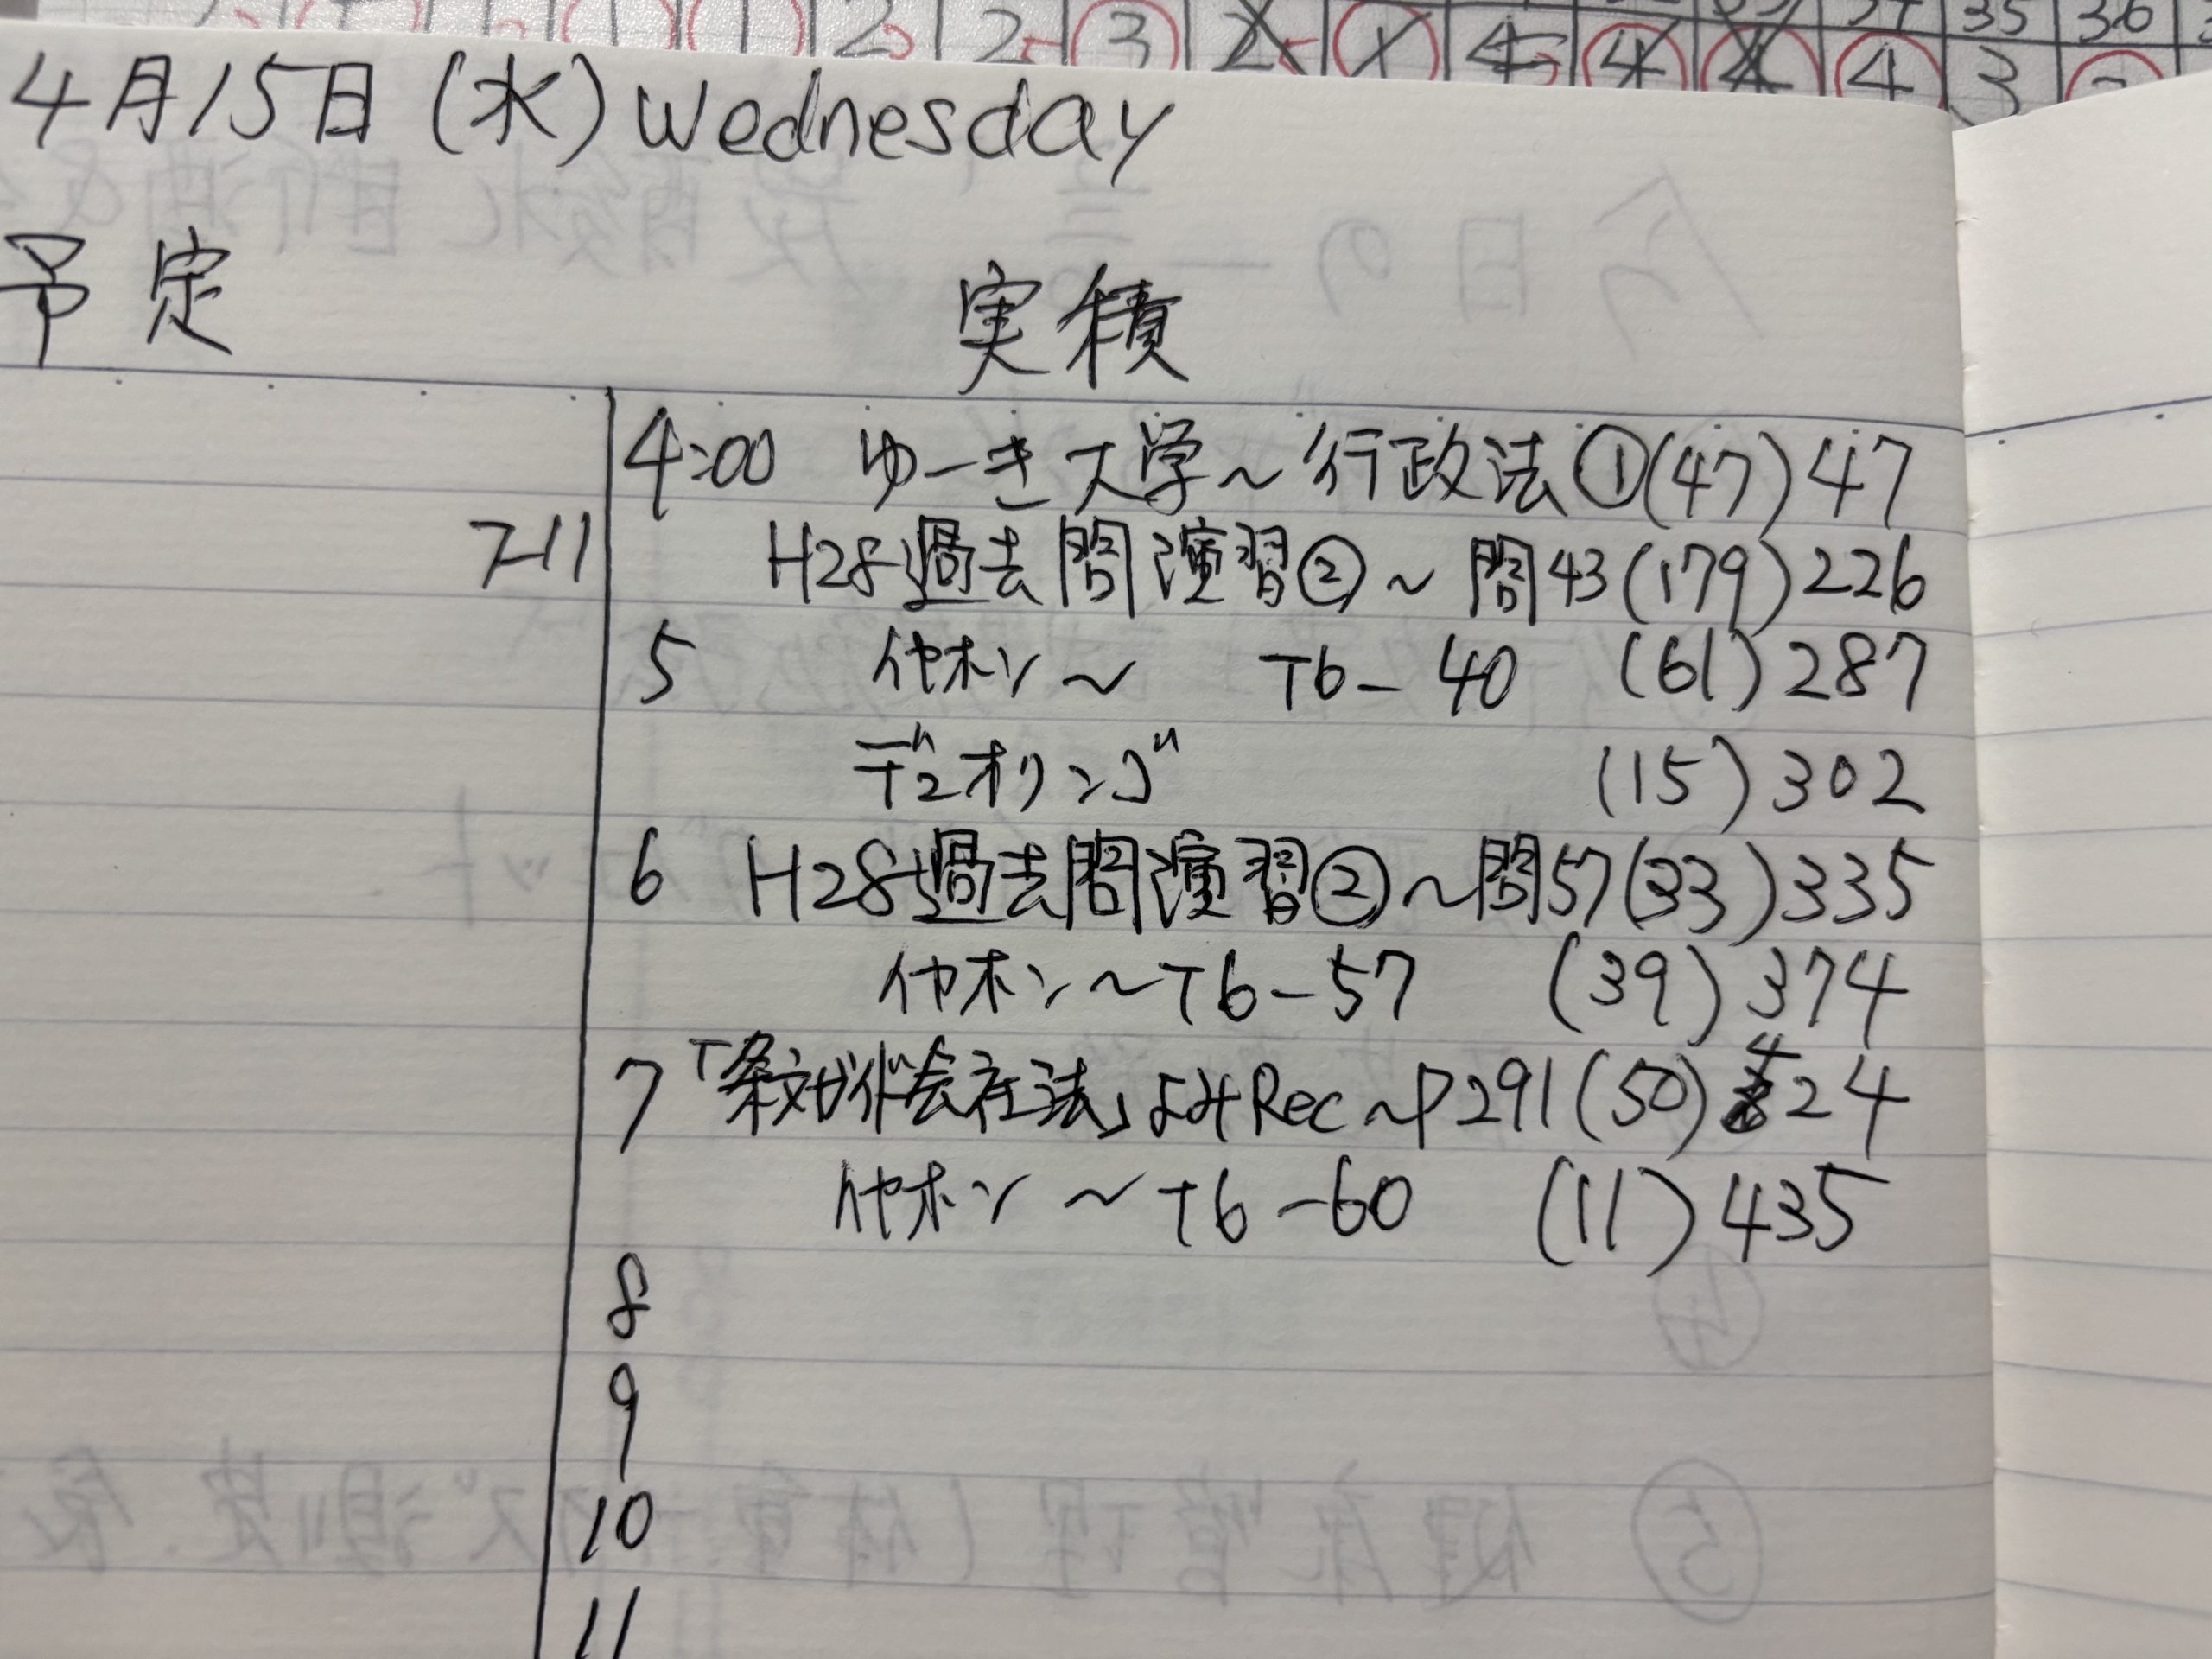 4月15日(水)Wednesday
予定
実積
4:00 ゆーき大学～行政法①(47)47
7-11
H28過去問演習②～問43(179)226
5 イヤホン～ T6-40 (61)287
デュオリンゴ (15)302
6 H28過去問演習②～問57(33)335
イヤホン～T6-57 (39)374
7 「条文ガイド会社法」よみRec～P291(50)424
イヤホン～T6-60 (11)435
8
9
10
11